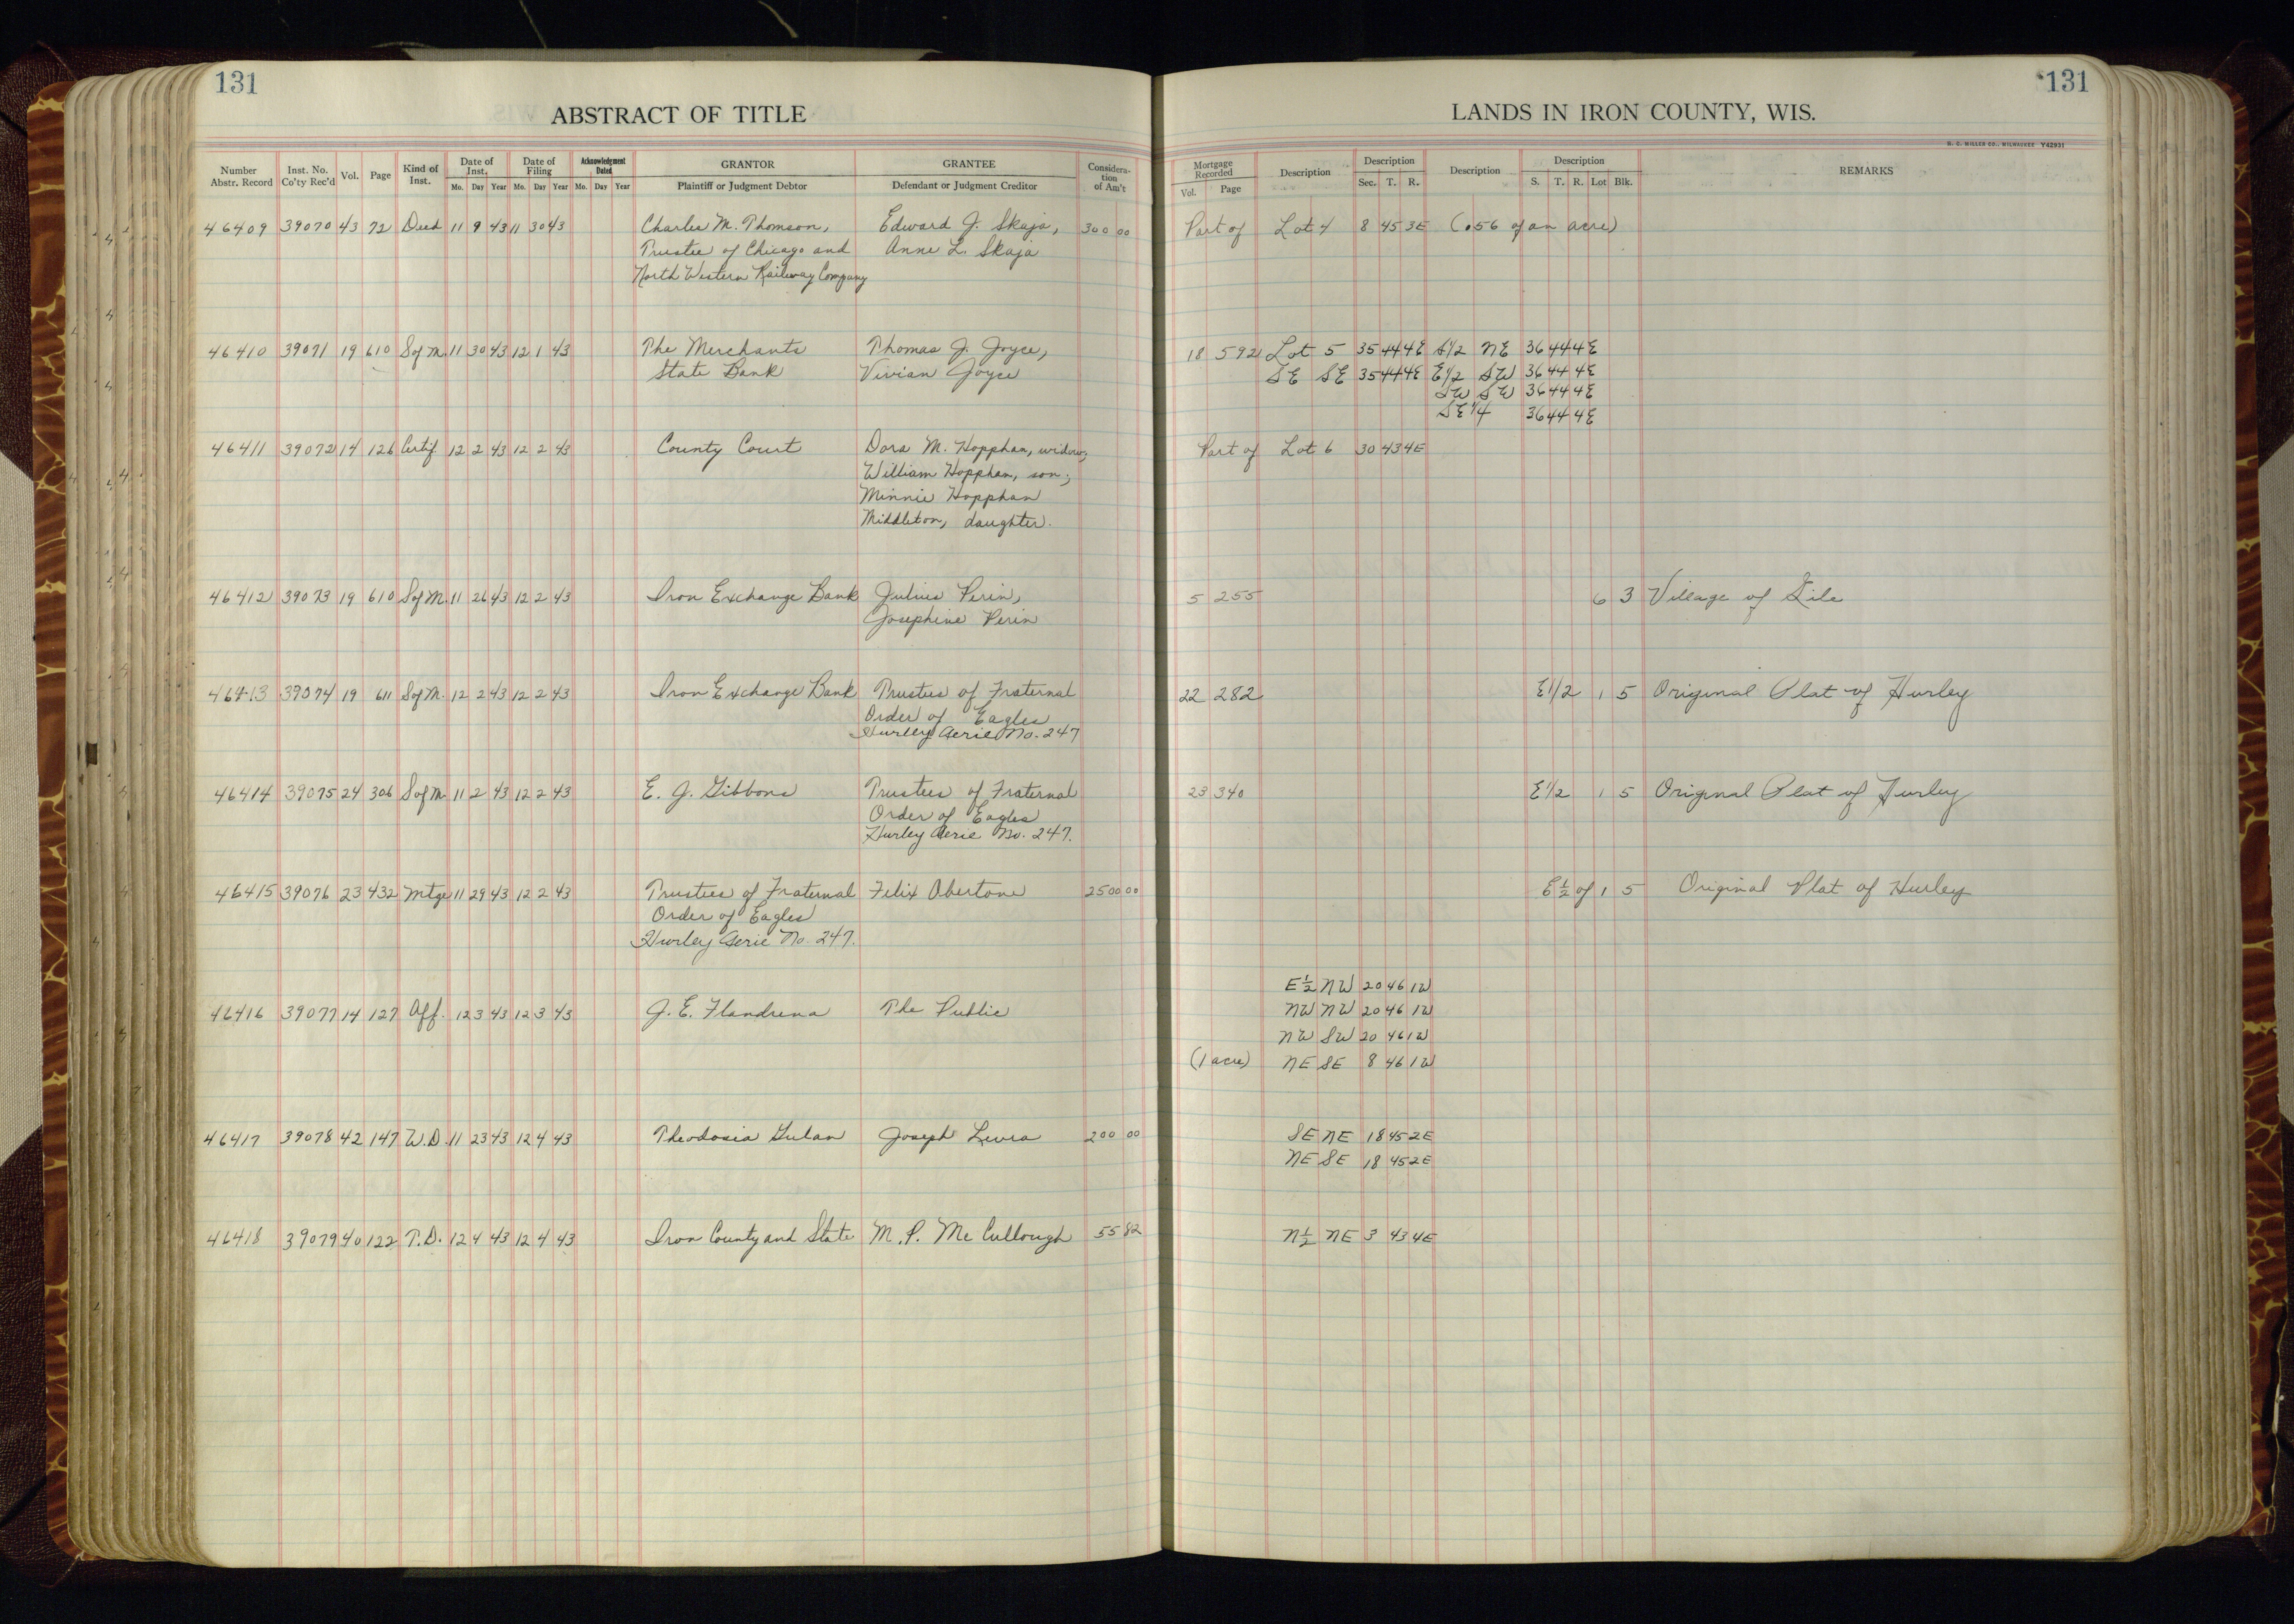 131
ABSTRACT OF TITLE
Number Abstr. Record
Inst. No. Co'ty Rec'd
Vol.
Page
Kind of Inst.
Date of Inst.
Mo. Day Year
Date of Filing
Mo. Day Year
Acknowledgment Dated
Mo. Day Year
GRANTOR
Plaintiff or Judgment Debtor
GRANTEE
Defendant or Judgment Creditor
Considera-tion of Am't
46409 39070 43 72 Deed 11 9 43 11 30 43 Charles M. Thomson, Edward J. Skaja, 300 00
Trustee of Chicago and Anne L. Skaja
North Western Railway Company
46410 39071 19 610 S of M. 11 30 43 12 1 43 The Merchants Thomas J. Joyce,
State Bank Vivian Joyce
46411 39072 14 126 Certif. 12 2 43 12 2 43 County Court Dora M. Hopphan, widow;
William Hopphan, son;
Minnie Hopphan
Middleton, daughter.
46412 39073 19 610 S of M. 11 26 43 12 2 43 Iron Exchange Bank Julius Perin,
Josephine Perin
46413 39074 19 611 S of M. 12 2 43 12 2 43 Iron Exchange Bank Trustees of Fraternal
Order of Eagles
Hurley Aerie No. 247
46414 39075 24 306 S of M. 11 2 43 12 2 43 E. J. Gibbons Trustees of Fraternal
Order of Eagles
Hurley Aerie No. 247.
46415 39076 23 432 Mtge 11 29 43 12 2 43 Trustees of Fraternal Felix Obertone 2500 00
Order of Eagles
Hurley Aerie No. 247.
46416 39077 14 127 Aff. 12 3 43 12 3 43 J. E. Flandrena The Public
46417 39078 42 147 W.D. 11 23 43 12 4 43 Theodosia Gulan Joseph Levra 200 00
46418 39079 40 122 T.D. 12 4 43 12 4 43 Iron County and State M. P. McCullough 55 82
131
LANDS IN IRON COUNTY, WIS.
H. C. MILLER CO., MILWAUKEE Y42931
Mortgage Recorded
Vol. Page
Description
Description
Sec. T. R.
Description
Description
S. T. R. Lot Blk.
REMARKS
Part of Lot 4 8 45 3E (.56 of an acre)
18 592 Lot 5 35 44 4E S1/2 NE 36 44 4E
SE SE 35 44 4E E1/2 SW 36 44 4E
SW SW 36 44 4E
SE 1/4 36 44 4E
Part of Lot 6 30 43 4E
5 255 6 3 Village of Gile
22 282 E1/2 1 5 Original Plat of Hurley
23 340 E1/2 1 5 Original Plat of Hurley
E 1/2 of 1 5 Original Plat of Hurley
E 1/2 NW 20 46 1W
NW NW 20 46 1W
NW SW 20 46 1W
(1 acre) NE SE 8 46 1W
SE NE 18 45 2E
NE SE 18 45 2E
N 1/2 NE 3 43 4E